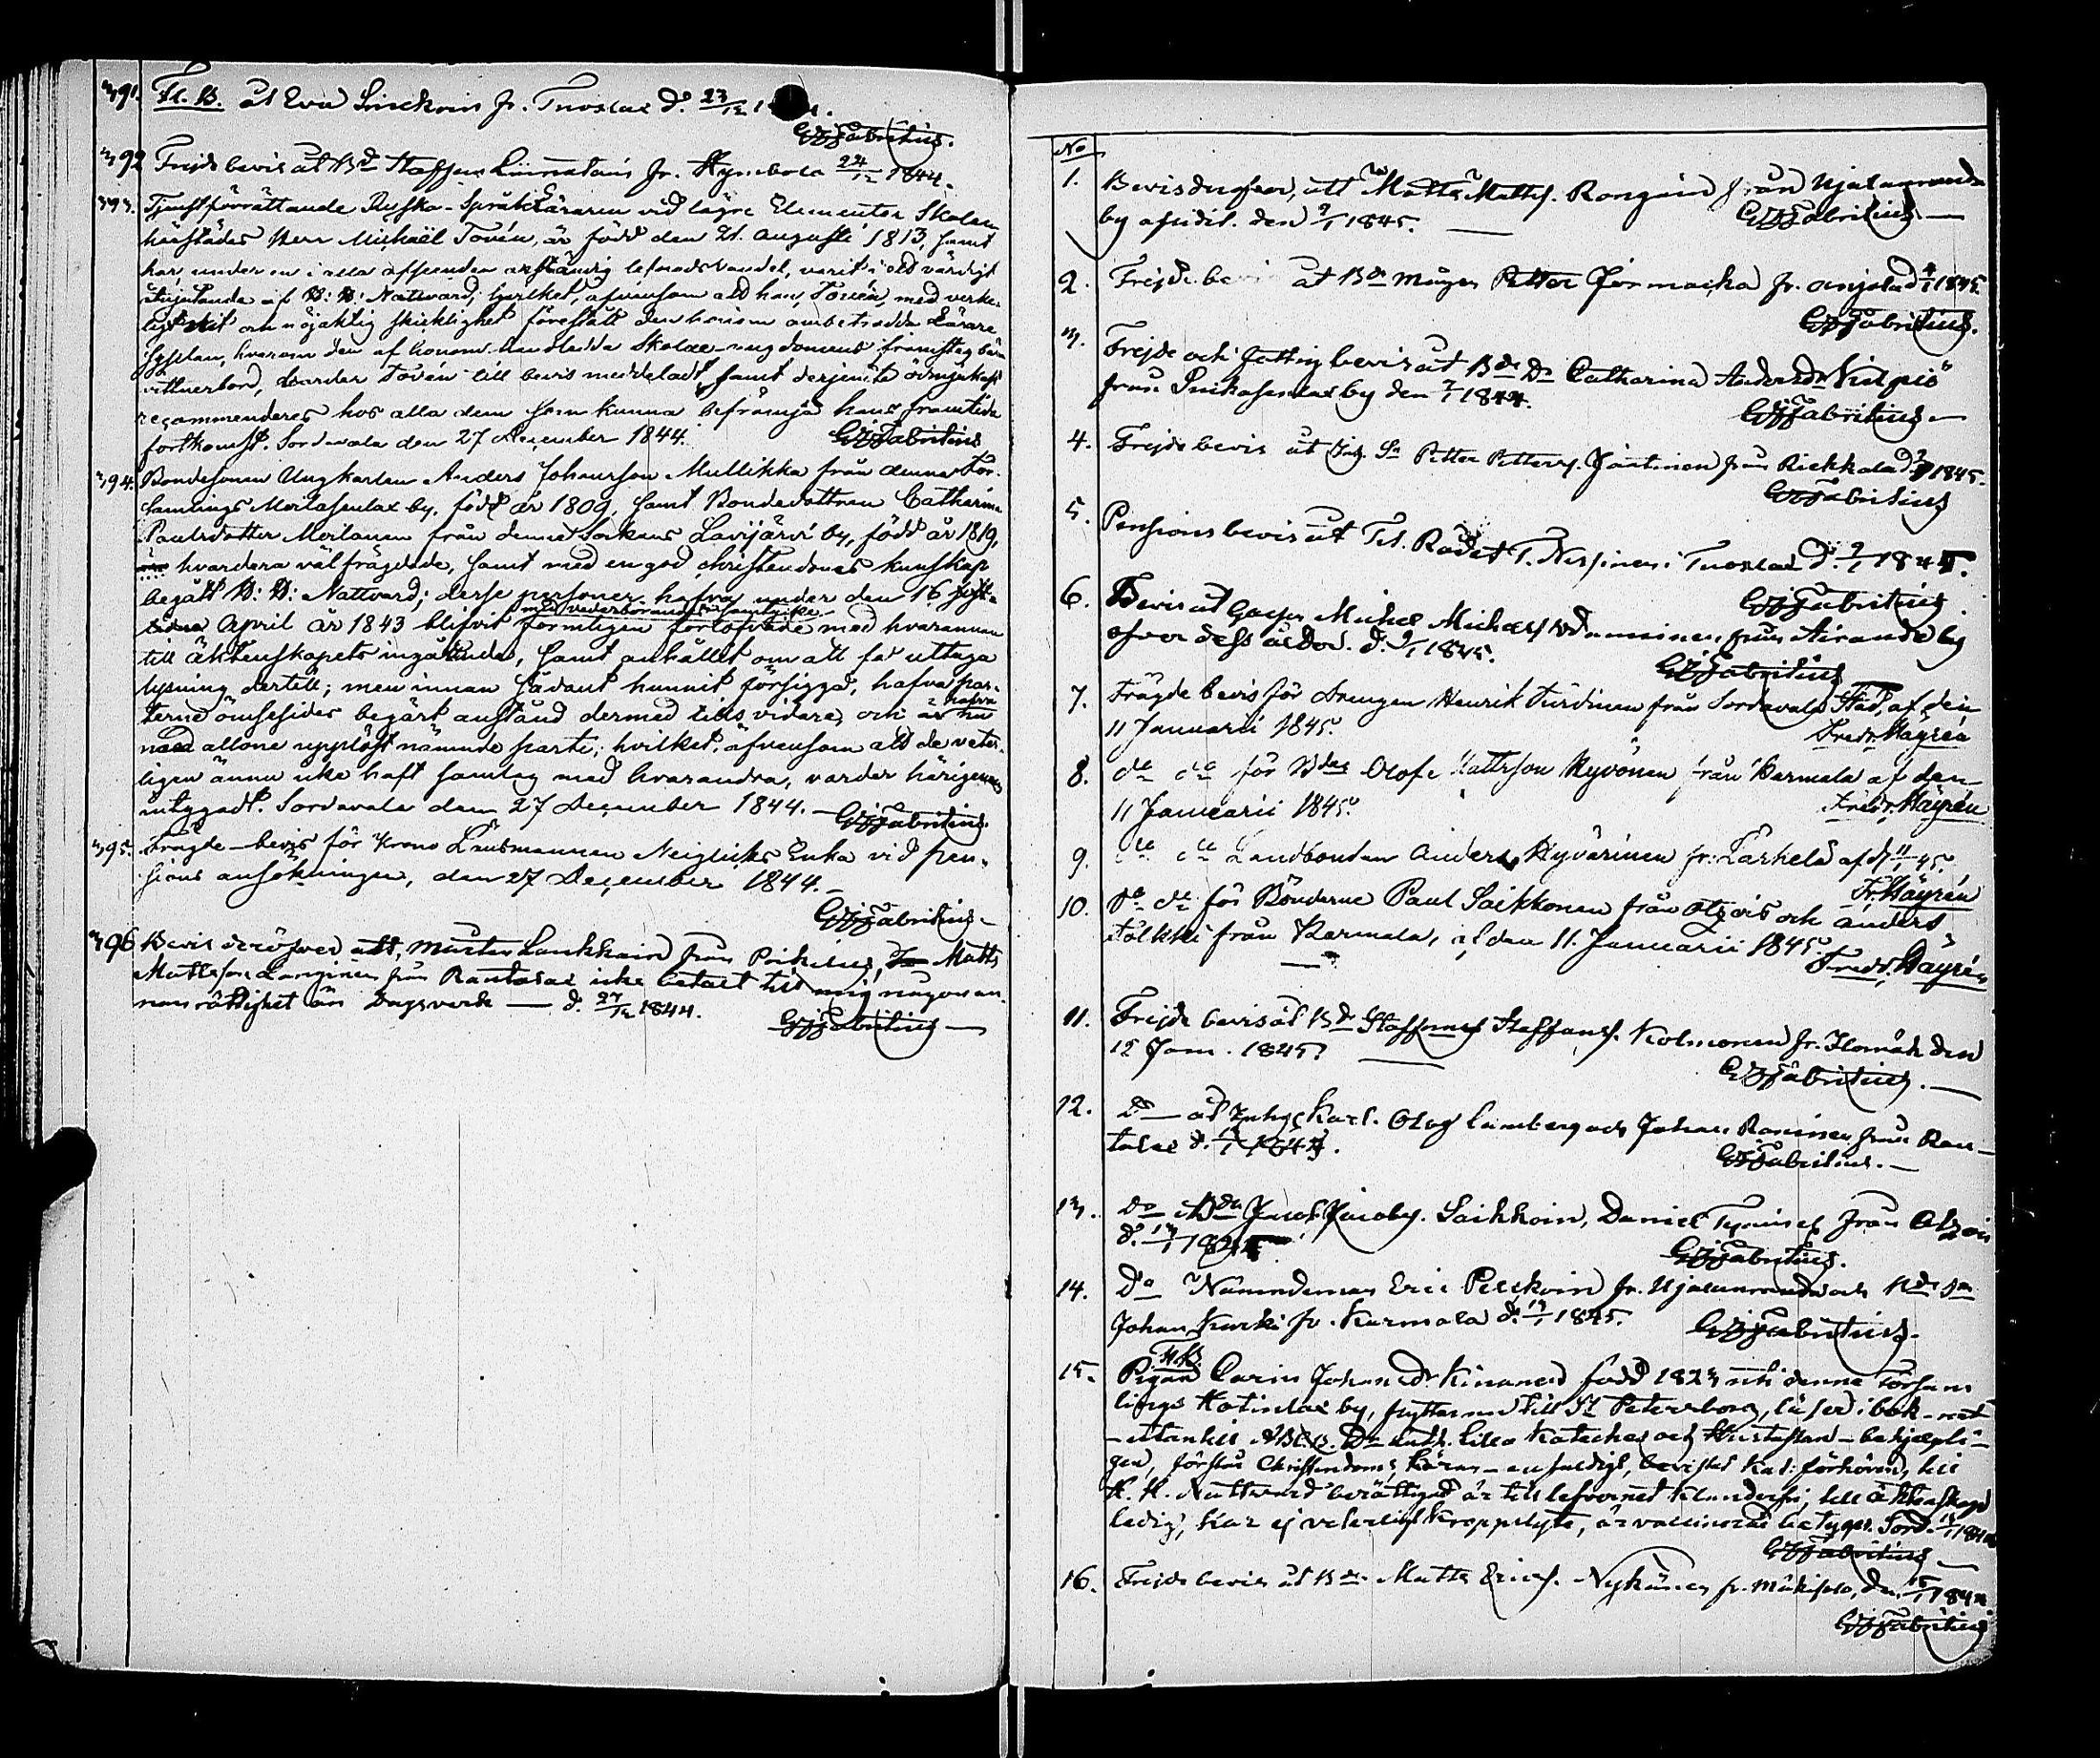 391. Fl. B. åt Eva Sinckoin fr. Tuoslax d. 23/12
GJFabritius.
392 Frejdebevis åt Bd Staffan Liinatain fr. Hymbola 24/12 1844.
393. Tjenstförrättande Ryska-Språkläraren vid lägre Elementar Skolan
härstädes Herr Michaël Tovén, är född den 21. Augusti 1813, samt
har, under en i alla afseenden anständig lefnadsvandel, varit i ett värdigt
åtnjutande af H: H: Nattvard; hvilket, äfvensom att han, Tovén, med verk-
lig nit och nöjaktig skicklighet förestått den honom anbetrodda Lärare
Syslan, hvarom den af honom handledda Skole-ungdomens framsteg bära
vittnesbörd, varder Tovén till bevis meddeladt, samt derjemte ödmjukast
recommenderas hos alla dem som kunna befrämja hans framtida
fortkomst. Sordavala den 27 December 1844. GJFabritius
394. Bondesonen Ungkarlen Anders Johansson Mullikka från denna För-
samlings Meriläsenlax by, född år 1809, samt Bondedottren Catharina
Paulsdotter Meilanen från denna Sockens Lavijärvi by, född år 1819,
hvardera välfrägdade, samt med en god christendoms kunskap
begått H: H: Nattvard; desse personer hafva under den 16
med vederbörandes samtycke
April år 1843 blifvit formligen förlofvade med hvarannan
till äktenskapets ingående, samt anhållit om att få uttaga
lysning dertill; men innan sådant hunnit försiggå, hafva par-
hafva
terne ömsesides begärt anstånd dermed tills vidare, och nu
med allone upplöst nämnde parti; hvilket, äfvensom att de veter-
ligen ännu icke haft samlag med hvarandra, varder härigenom
intygadt. Sordavala den 27 December 1844. — GJFabritius.
395. Frägde-bevis för Krono Länsmannen Neiglicks Enka vid pen-
sions ansökningen, den 27 December 1844. —
GJFabritius —
396 Bevis deröfver att, Mårten Laukkain från Poikelus, Matts
Mattsson Langinen från Rantasal icke betalt till mig någon an-
nan rättighet än Dagsverk — d. 27/12 1844.
GJFabritius —
No
1. Bevis deröfver, att Matts Mattss. Rongain från Hjalamanda
by afvidit. den 2/1 1845. — GJFabritius —
2. Frejdebevis åt Bdn Mågen Petter Jormacka fr. Anjolad 4/1 1845.
GJFabritius.
3. Frejde och fattig bevis åt Bde Dr Catharina Andersdr Kilpiö
från Puikasenlax by den 7/1 1844.
GJFabritius —
4. Frejdebevis åt Inh. Sn Petter Petterss. Jäntinen från Riekkala d 7/1 1845.
GJFabritius
5. Pensions bevis åt Tit. Rådet T. Nessinen i Tuoslax d. 9/1 1845.
GJFabritius.
6. Bevis åt Gossen Michel Michelss från Airanda by
öfver dess ålder. d. 9/1 1845.
GJFabritius
7. Frägde bevis för Drengen Henrik Turdinen från Sordavala Stad, af den
11 Januarii 1845. Fredr. Häyrén
8. do do för Bden Olof Mattsson Hyvönen från Karmala af den
11 Januarii 1845. Fredr. Häyrén
9. do do Landbonden Anders Hyvärinen fr. Läskelä af d 11/1 45.
Fr. Häyrén
10. do do för Bönderne Paul Saikkonen från Otsois och Anders
Tolkki från Karmala, af den 11. Januarii 1845.
Fredr. Häyrén
11. Frejde bevis åt Bd Staffans. Kolmonen fr. Ilomäk den
12 Jan. 1845. —
GJFabritius. —
12. Do — åt Inhyse Karl. Olof Limberg och Johan Roninen från Ran-
talax d. 13/1 1845.
GJFabritius. —
13. Do Bdn Jacob Jacobs. Saikkoin, Daniel från Otsois
d. 13/1
GJFabritius.
14. Do Nämndeman Eric Peickoin fr. Hjalamanda och Bde Sn
Johan Kurki fr. Karmala d. 13/1 1845. GJFabritius.
Fl. B.
15. Pigan Carin Johansdr Kinanen född 1823 uti denna Försam-
lings Hotinlax by, flyttar nu till St Petersborg, läser i bok-nät
-utantill ABCB. Dr Luth. Lilla Kateches och Hustaflan-behjelpli-
gen, förstår Christendoms läran-enfaldigt, bevistat Kat. förhören, till
H. H. Nattvard berättigad är till lefvernet klanderfri, till äktenskapet
ledig, har ej veterligt kroppslyte, är vaccinerad betygas. Sord. 15/1
GJFabritius —
16. Frejde bevis åt Bdn Matts Ericss. Nykänen fr. Mäkisalo, den 15/1
GJFabritius